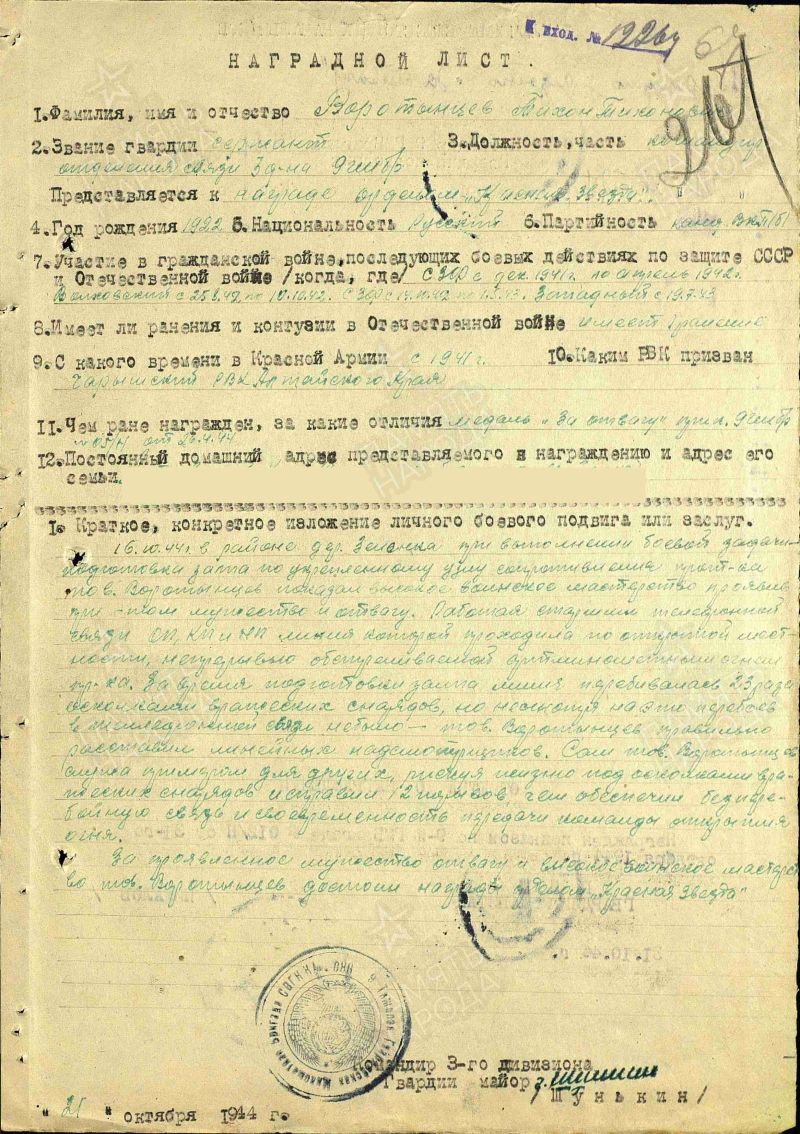 К вход. № 1226у
НАГРАДНОЙ ЛИСТ.
261
1. Фамилия, имя и отчество Воротынцев Тихон Тихонович
2. Звание гвардии сержант 3. Должность, часть командир
отделения связи 3 д-на 9 гмбр
Представляется к награде орденом „Красн. Звезда".
4. Год рождения 1922 5. Национальность Русский 6. Партийность канд ВКП/б/
7. Участие в гражданской войне, последующих боевых действиях по защите СССР
и Отечественной войне /когда, где/ СЗФ с дек. 1941 г. по апрель 1942 г.
Волховский с 25.8.42 по 10.10.42. СЗФ с Западный с 19.7.43
8. Имеет ли ранения и контузии в Отечественной войне имеет ранение
9. С какого времени в Красной Армии с 1941 г. 10. Каким РВК призван
Чарышский РВК Алтайского Края
11. Чем ране награжден, за какие отличия медаль „За отвагу" 9 гмбр
№ 05/н от 26.4.44
12. Постоянный домашний адрес представляемого к награждению и адрес его
семьи.
1. Краткое, конкретное изложение личного боевого подвига или заслуг.
16.10.44 г. в районе дер. при выполнении боевой задачи
подготовки залпа по укрепленному узлу сопротивления прот-ка
тов. Воротынцев показал высокое воинское мастерство проявив
при этом мужество и отвагу. Работая старшим телефонной
связи ОП, КП и НП линия которой проходила по открытой мест-
ности, непрерывно обстреливаемой артминометным огнем
пр-ка. За время подготовки залпа линия перебивалась 23 раза
осколками вражеских снарядов, но несмотря на это перебоев
в телефонной связи не было — тов. Воротынцев правильно
расставил линейных надсмотрщиков. Сам тов. Воротынцев
служа примером для других, рискуя жизнью под осколками вра-
жеских снарядов исправил 12 порывов, чем обеспечил беспере-
бойную связь и своевременность передачи команды открытия
огня.
За проявленное мужество отвагу и высокое воинское мастерст-
во тов. Воротынцев достоин награды орденом „Красная Звезда"
31.10.44 г.
Командир 3-го дивизиона
Гвардии майор
/Тунькин/
" 21 " октября 1944 г.